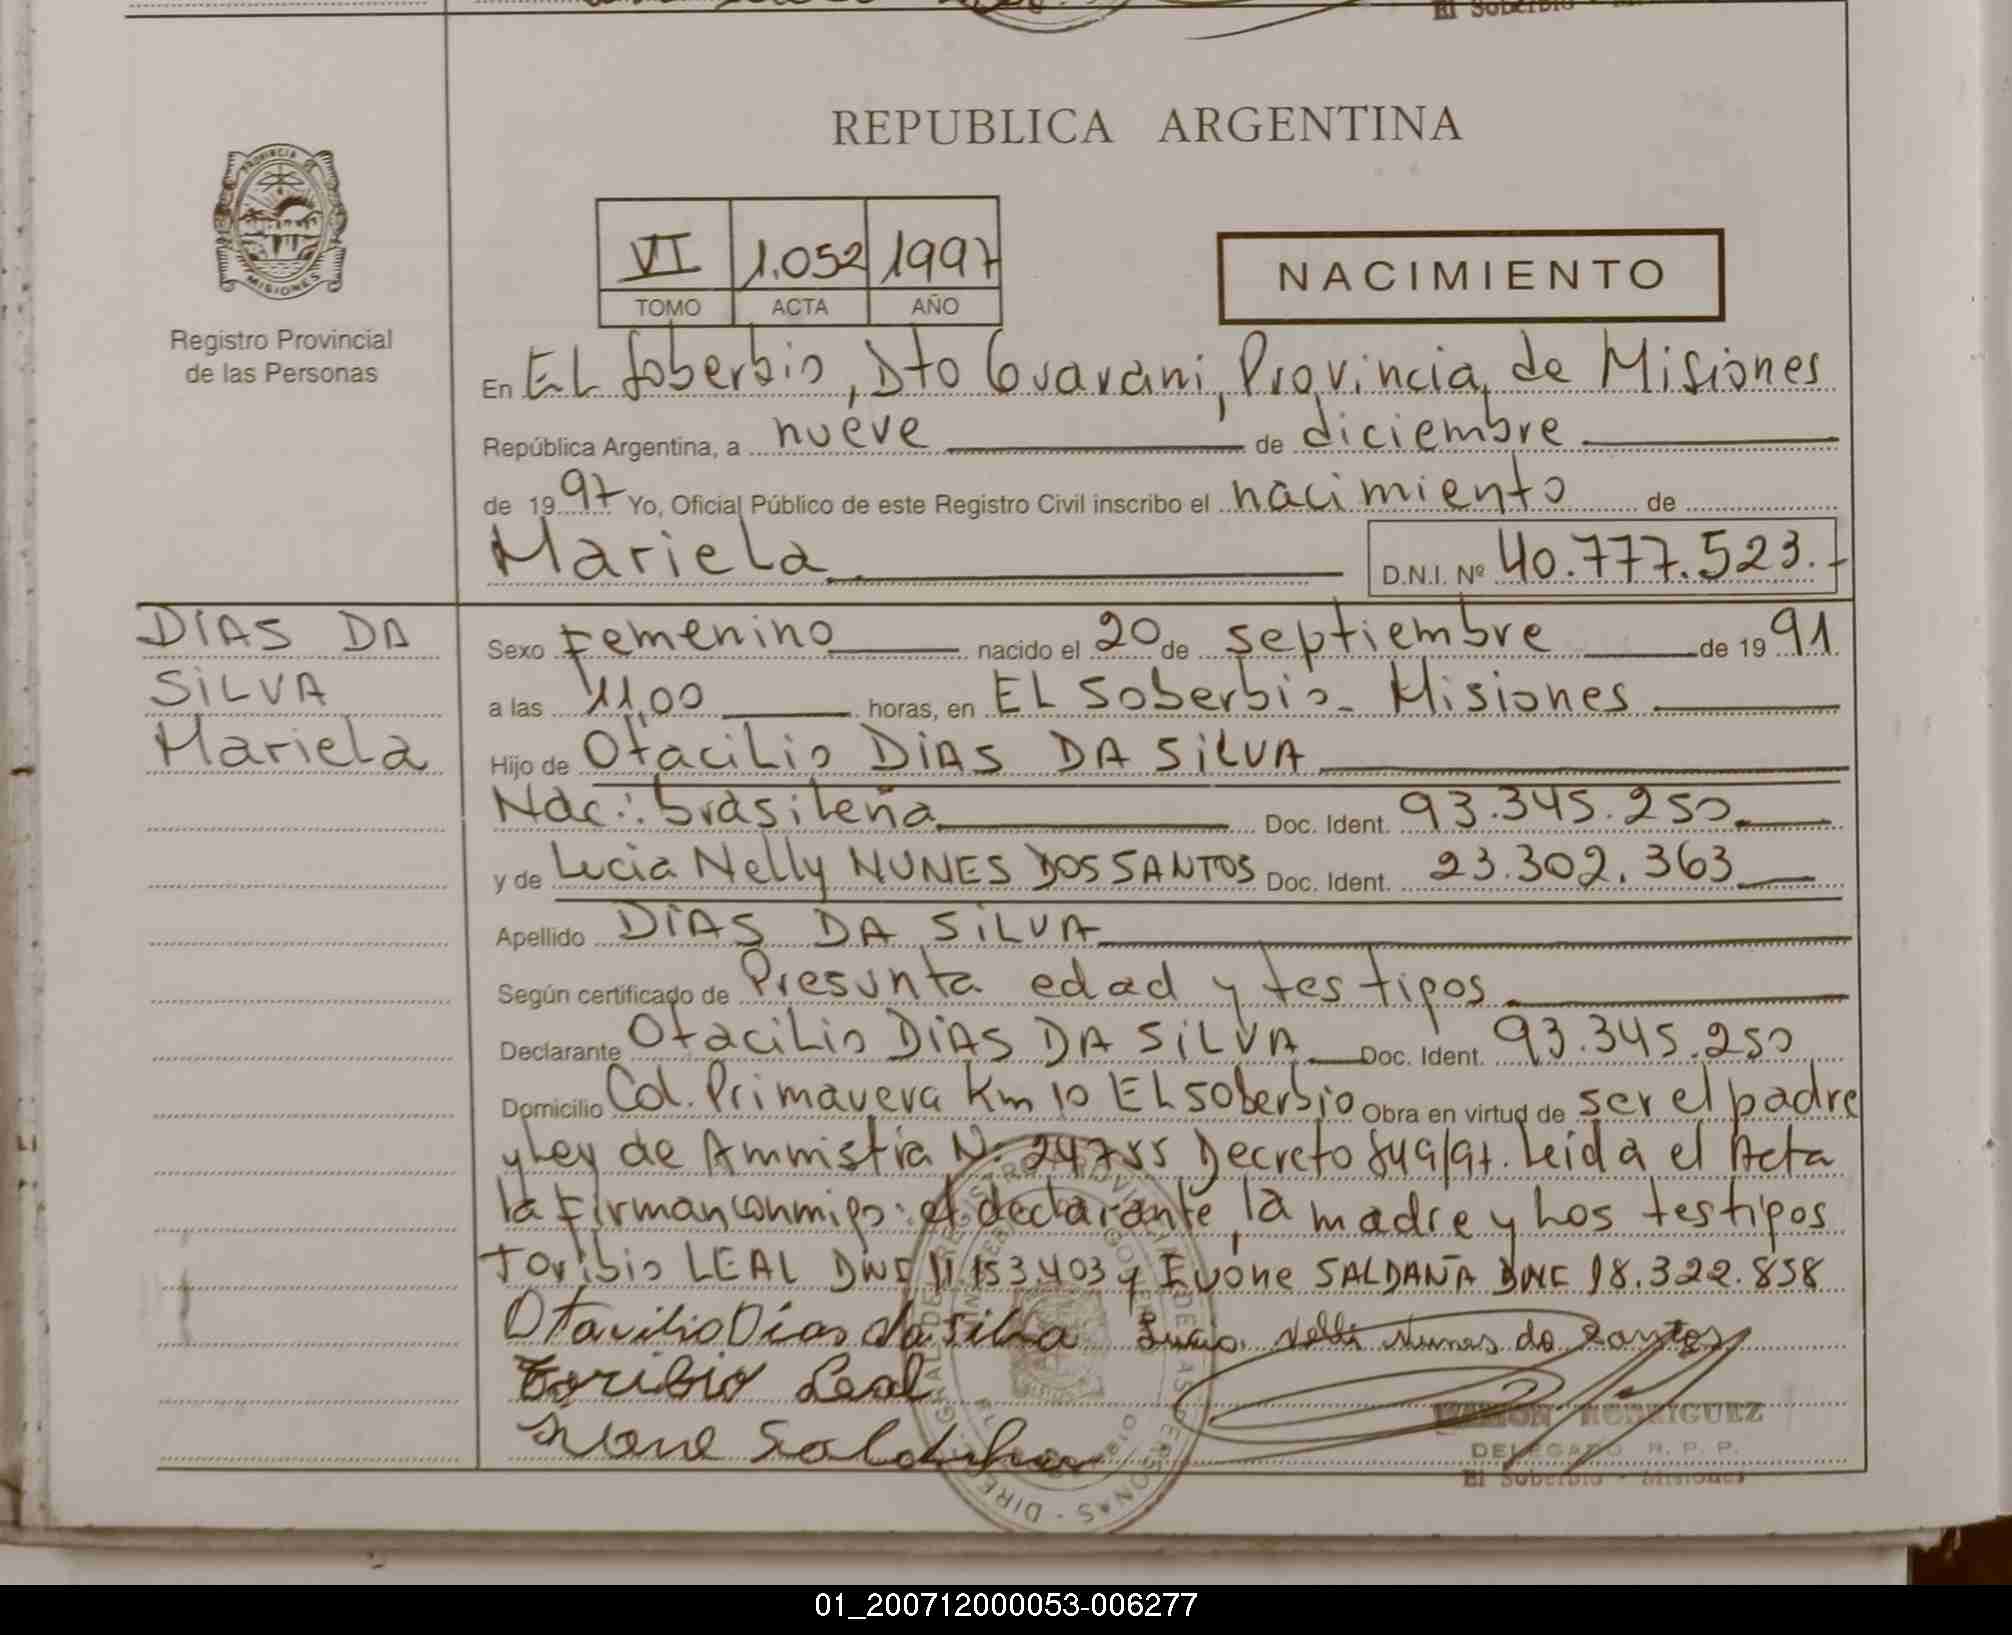 REPUBLICA ARGENTINA
PROVINCIA DE
MISIONES
Registro Provincial
de las Personas
VI 1.052 1997
TOMO ACTA AÑO
NACIMIENTO
En EL Soberbio, Dto Guarani, Provincia de Misiones
República Argentina, a nueve de diciembre
de 1997 Yo, Oficial Público de este Registro Civil inscribo el nacimiento de
Mariela D.N.I. Nº 40.777.523.-
DIAS DA
SILVA
Mariela
Sexo Femenino nacido el 20 de septiembre de 1991
a las 11,00 horas, en EL Soberbio - Misiones
Hijo de Otacilio DIAS DA SILVA
Nac.: brasileña Doc. Ident. 93.345.250
y de Lucia Nelly NUNES DOS SANTOS Doc. Ident. 23.302.363
Apellido DIAS DA SILVA
Según certificado de Presunta edad y testigos
Declarante Otacilio DIAS DA SILVA Doc. Ident. 93.345.250
Domicilio Col. Primavera Km 10 EL Soberbio Obra en virtud de ser el padre
y Ley de Ammistia N: 24755 Decreto 849/97. Leida el Acta
la firman conmigo: el declarante, la madre y Los testigos
Toribio LEAL DNI 11.153.403 y Ivone SALDAÑA DNI 18.322.858
Otacilio Dias da Silva Lucia Nelli Nunes do Santos
Toribio Leal
Ivone
RAMON RODRIGUEZ
DELEGADO R. P. P.
El Soberbio - Misiones
01_200712000053-006277